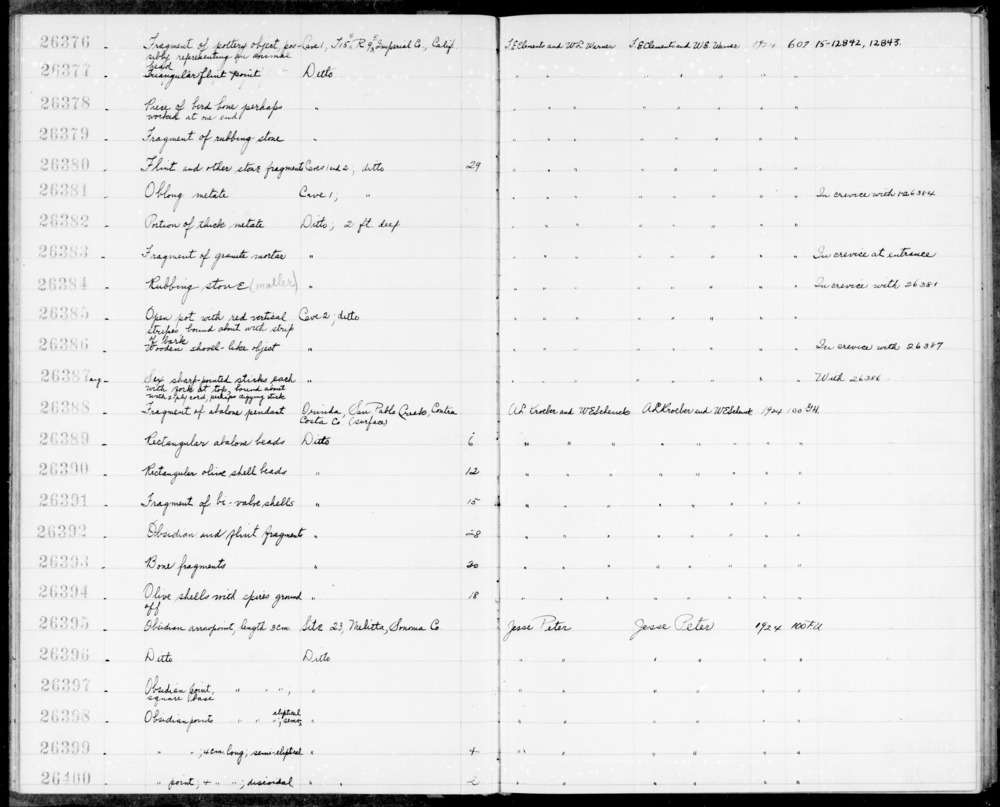 26376 - Fragment of pottery object, pos- Cave 1, T15 S R 9 E Imperial Co., Calif. F.E Clements and W.L Warner F.E Clements and W.L Warner 1924 607 15-12842, 12843.
sibly representing an animal
head
26377 - Triangular flint point Ditto " " " " " " "
26378 - Piece of bird bone perhaps " " " " " " " "
worked at one end
26379 - Fragment of rubbing stone " " " " " " " "
26380 - Flint and other stone fragments Caves 1 and 2; ditto 29 " " " " " " "
26381 - Oblong metate Cave 1; " " " " " " " " In crevice with 1-26384
26382 - Portion of thick metate Ditto; 2 ft. deep " " " " " " "
26383 - Fragment of granite mortar " " " " " " " " In crevice at entrance
26384 - Rubbing stone (muller) " " " " " " " " In crevice with 26381
26385 - Open pot with red vertical Cave 2; ditto " " " " " " "
stripes, bound about with strip
of bark
26386 - Wooden shovel-like object " " " " " " " " In crevice with 26387
26387 avg - Six sharp-pointed sticks each " " " " " " " " With 26386
with fork at top, bound about
with 2 ply cord, perhaps digging stick
26388 - Fragment of abalone pendant Orinda, San Pablo Creek, Contra A.L Kroeber and W E Schenck A.L Kroeber and W E Schenck 1924 100
Costa Co (surface)
26389 - Rectangular abalone beads Ditto 6 " " " " " " " "
26390 - Rectangular olive shell beads " 12 " " " " " " "
26391 - Fragment of bi-valve shells " 15 " " " " " " "
26392 - Obsidian and flint fragments " 28 " " " " " " "
26393 - Bone fragments " 20 " " " " " " "
26394 - Olive shells with spires ground " 18 " " " " " " "
off
26395 - Obsidian arrowpoint, length 3cm Site 23, Melitta, Sonoma Co Jesse Peter Jesse Peter 1924 100
26396 - Ditto Ditto " " " " " "
26397 - Obsidian point, " " ", " " " " " " "
square base
26398 - Obsidian points " " "; semi- " " " " " " "
eliptical
26399 - " "; 4 cm. long; semi-eliptical " 4 " " " " " "
26400 - " point; 4 " "; discoidal " " 2 " " " " " "